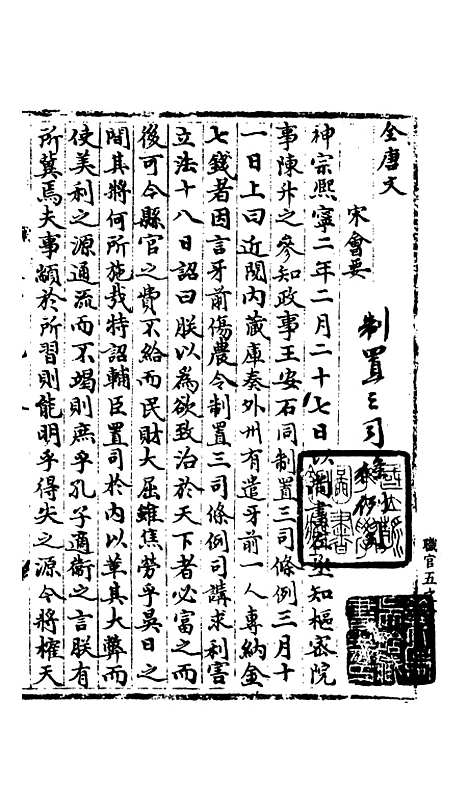 全唐文
宋會要
制置三司條例司
神宗熙寧二年二月二十七日以
知樞密院
事陳升之參知政事王安石同制置三司條例三月十
一日上曰近閱內藏庫奏外州有遣牙前一人專納金
七錢者因言牙前傷農令制置三司條例司講求利害
立法十八日詔曰朕以為欲致治於天下者必富之而
後可今縣官之費不給而民財大屈雖焦勞乎昃日之
間其將何所施哉特詔輔臣置司於內以革其大弊而
使美利之源通流而不竭則庶乎孔子適衛之言朕有
所冀焉夫事顓於所習則能明乎得失之源今將權天
職官五